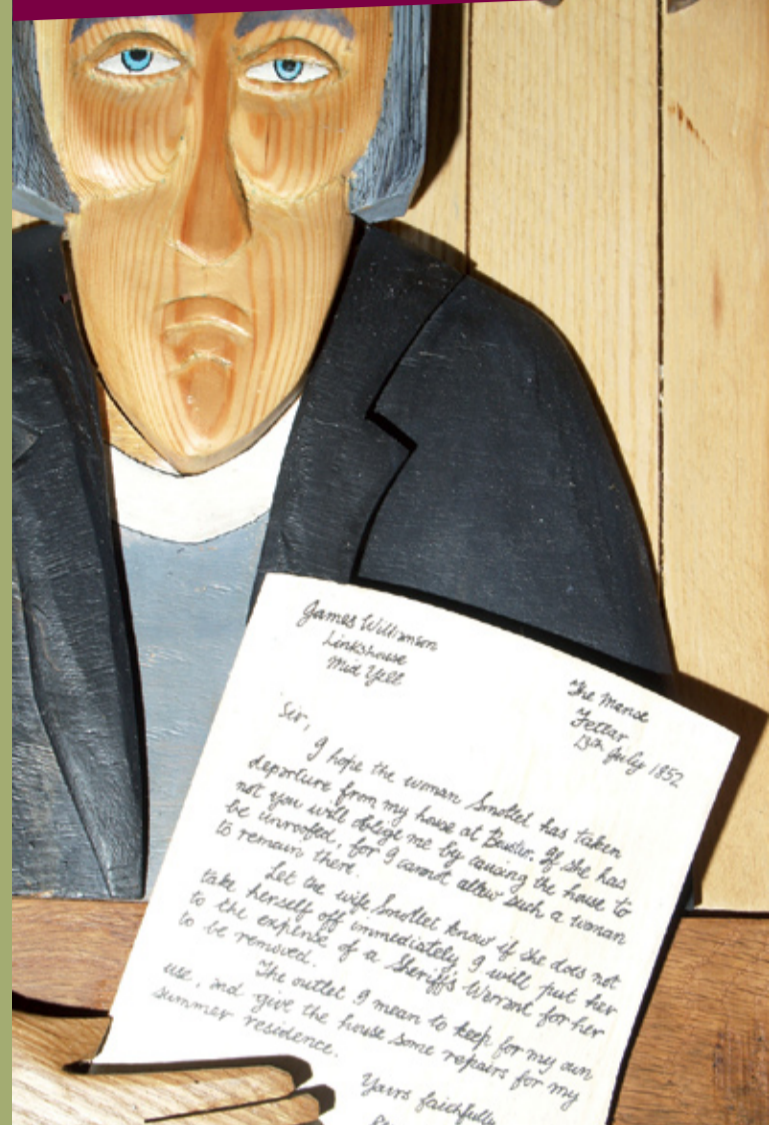 James Williamson
Linkshouse
Mid Yell
The Manse
Fetlar
13th July 1852
Sir,
I hope the woman Smollet has taken
departure from my house at Buster. If she has
not you will oblige me by causing the house to
be unroofed, for I cannot allow such a woman
to remain there.
Let the wife Smollet know if she does not
take herself off immediately I will put her
to the expense of a Sheriff's Warrant for her
to be removed.
The outlet I mean to keep for my own
use, and give the house some repairs for my
summer residence.
Yours faithfully